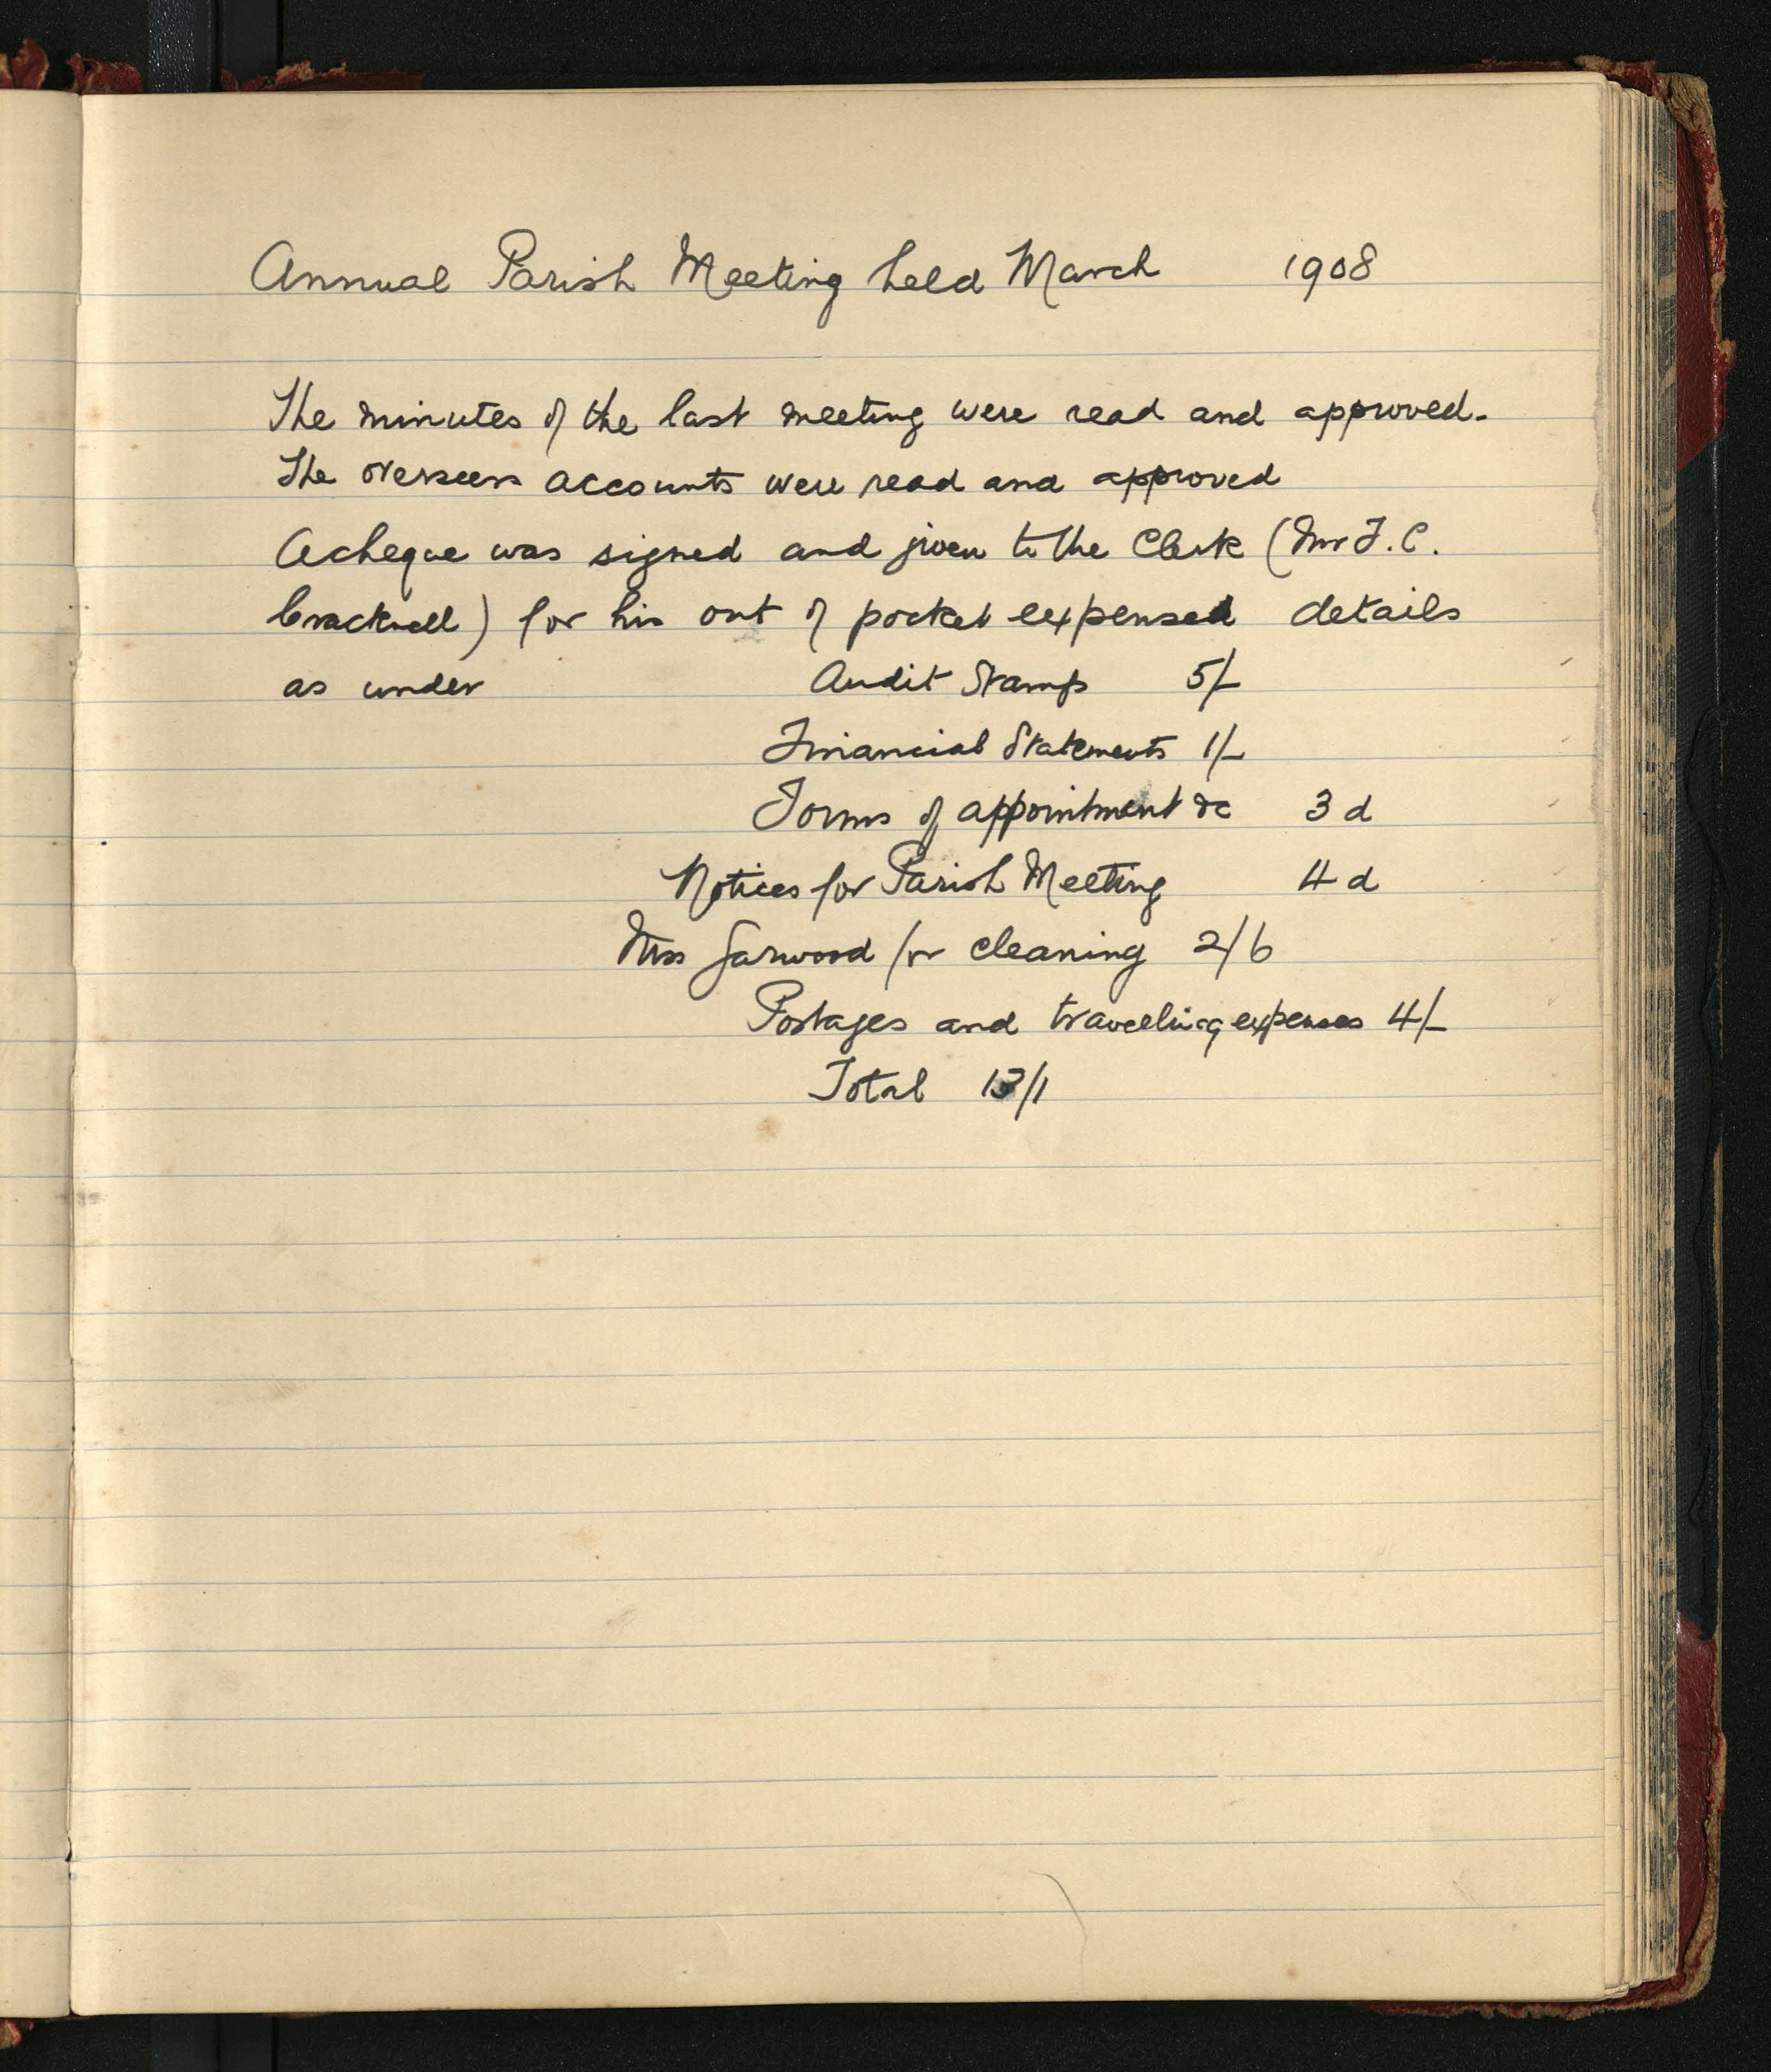 Annual Parish Meeting held March 1908
The minutes of the last meeting were read and approved.
The overseers accounts were read and approved
A cheque was signed and given to the Clerk (Mr F. C.
Cracknell) for his out of pocket expenses details
as under Audit Stamp 5/-
Financial Statements 1/-
Forms of appointment &c 3 d
Notices for Parish Meeting 4 d
Mrs Garwood for cleaning 2/6
Postages and travelling expenses 4/-
Total 13/1